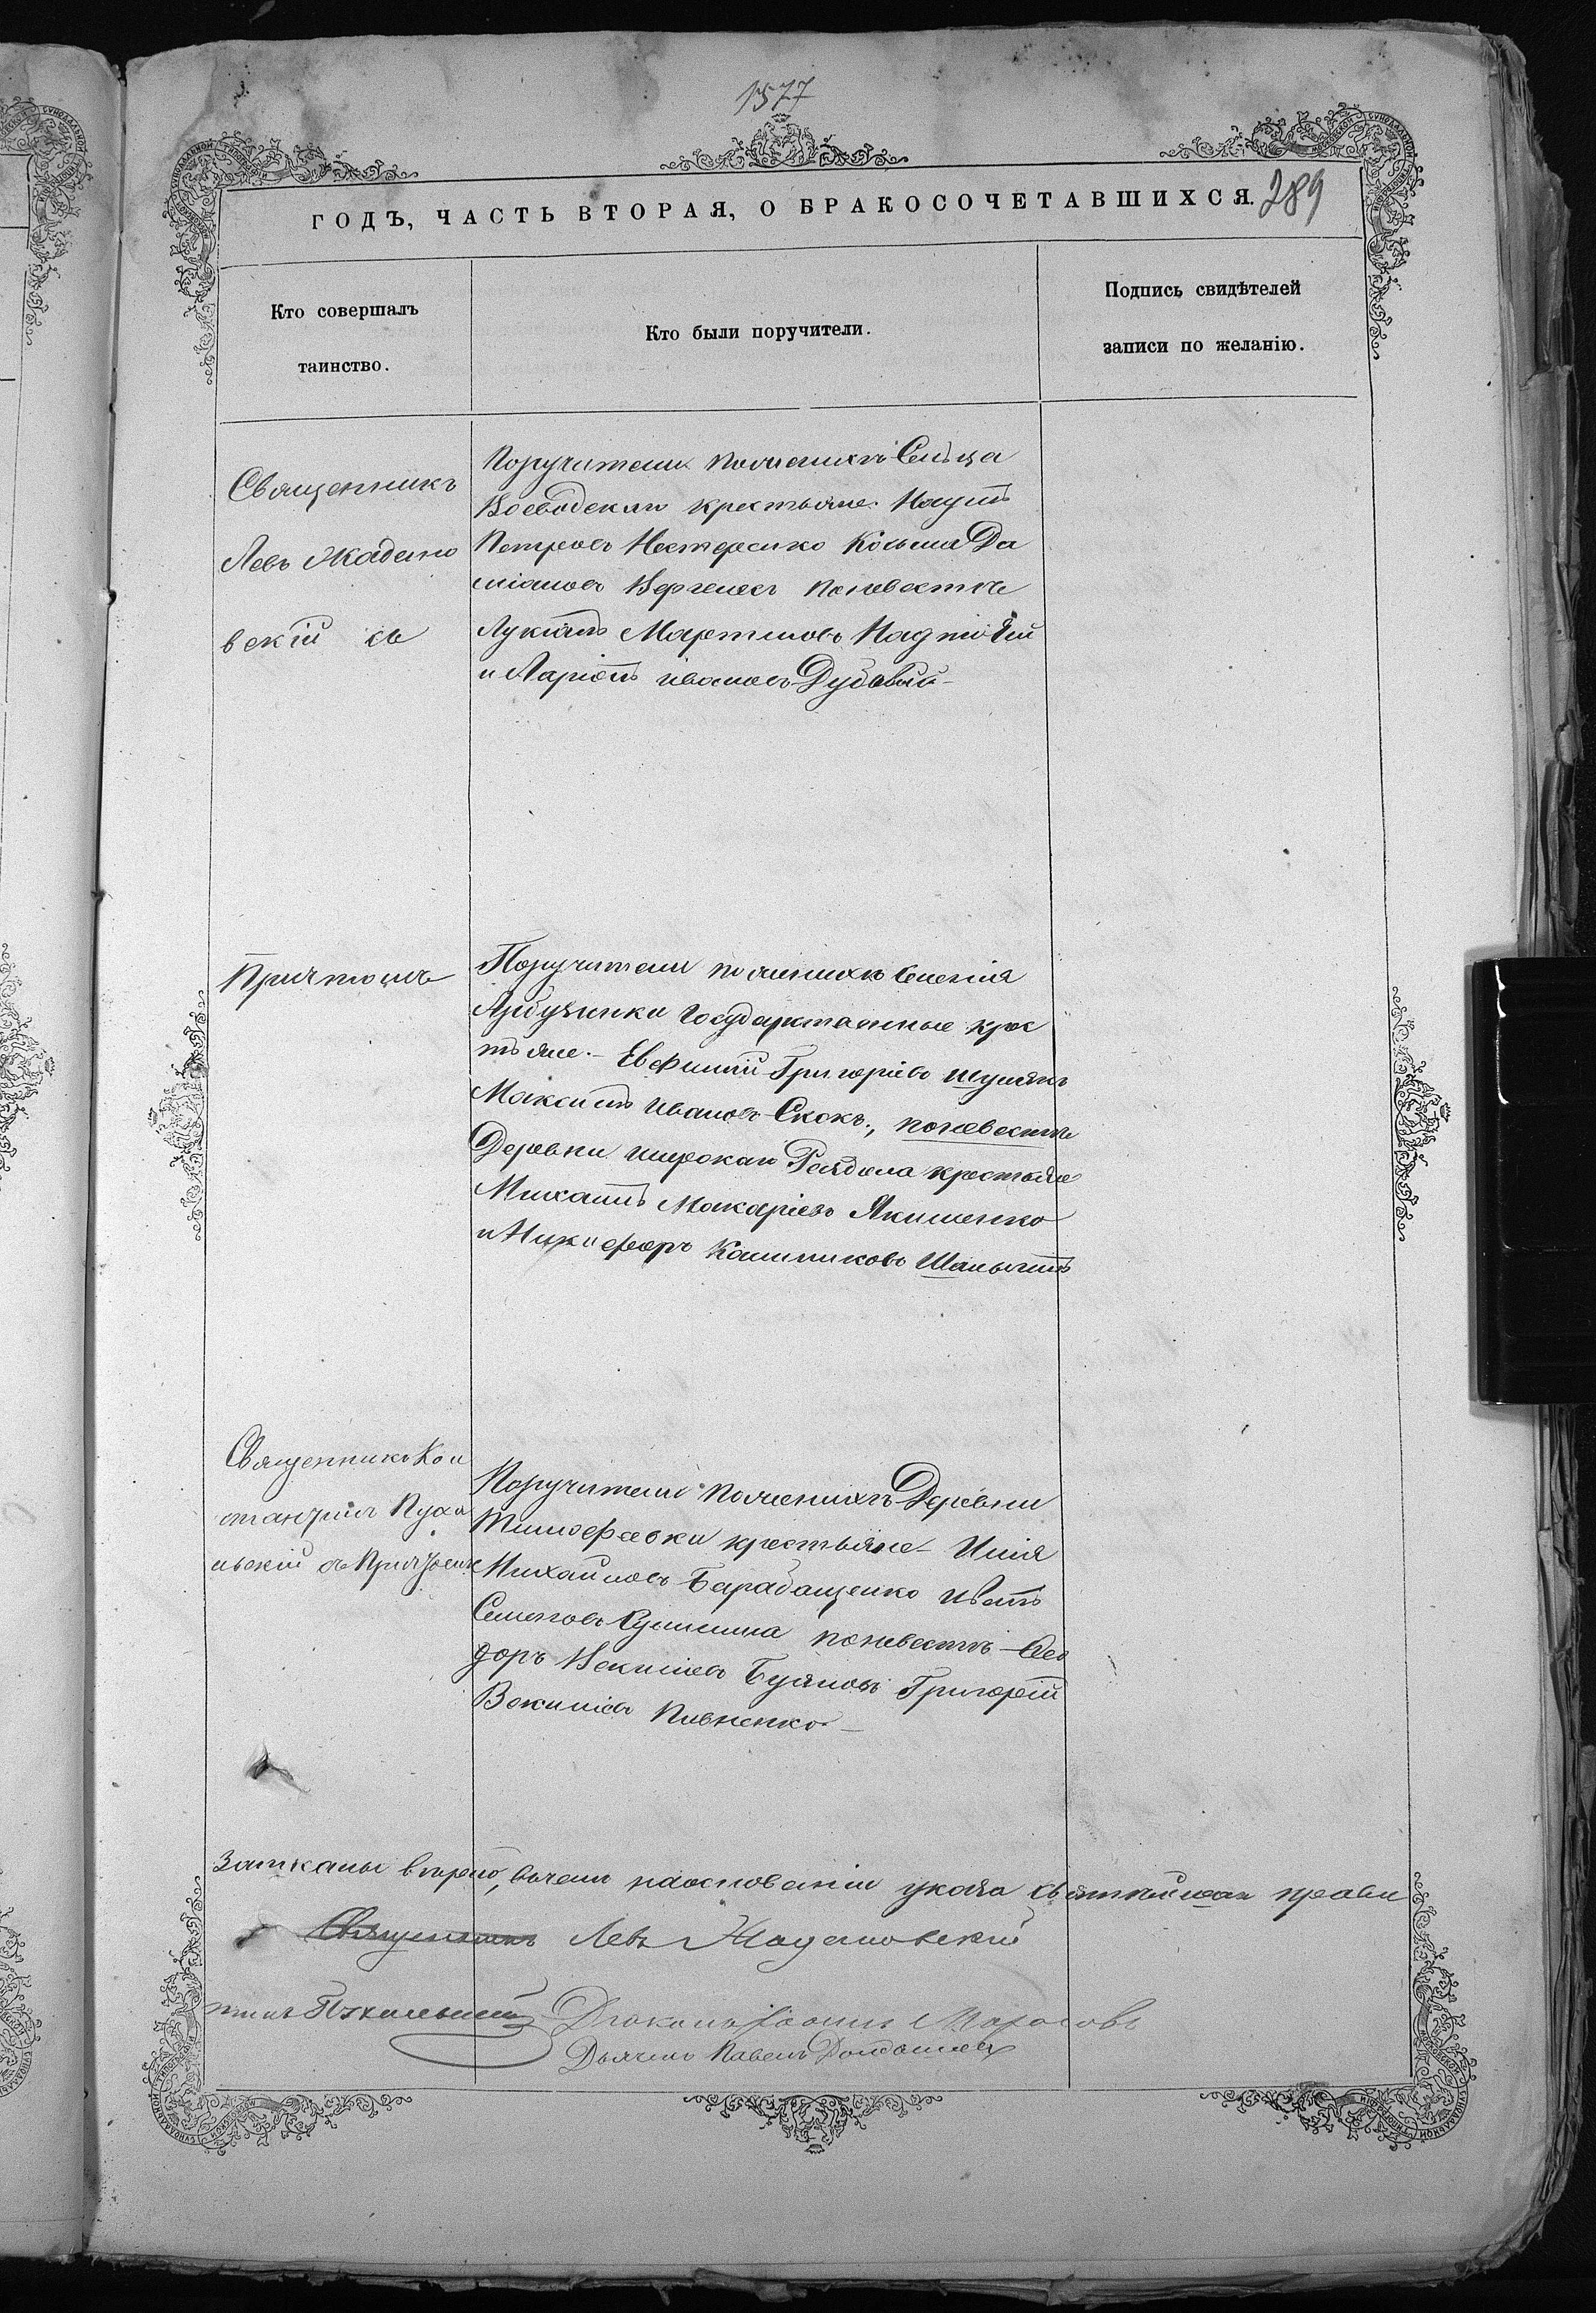 1577
ГОДЪ, ЧАСТЬ ВТОРАЯ, О БРАКОСОЧЕТАВШИХСЯ.
289
Кто совершалъ
таинство.
Кто были поручители.
Подпись свидѣтелей
записи по желанію.
Священникъ
Левъ Жадано
вскій съ
Поручители по женихѣ Сельца
Воеводскаго крестьяне Наумъ
Петровъ Нестеренко Косьма Да
міановъ по невѣстѣ
Лукіанъ Мартиновъ
и Ларіонъ Ивановъ Дубовый
Причтомъ
Поручители по женихѣ Селенія
Арбузинки Государственные крес
тьяне. Евфимій Григоріевъ
Максимъ Ивановъ Скокъ, по невѣстѣ
Деревни Широкаго Раздола крестьяне
Михаилъ Макаріевъ Якименко
и Никифоръ Шаповалъ
Священникъ Кон
стантинъ Пуха
льскій съ Причтомъ
Поручители по женихѣ Деревни
Тимофеевки крестьяне Илія
Михайловъ Барабащенко Иванъ
Семеновъ по невѣстѣ Ѳео
доръ Григорій
Пивненко
на основаніи указа святѣйшаго прави
Священникъ Левъ Жадановскій
Пухальскій
Діаконъ Іоаннъ
Дьячекъ Павелъ